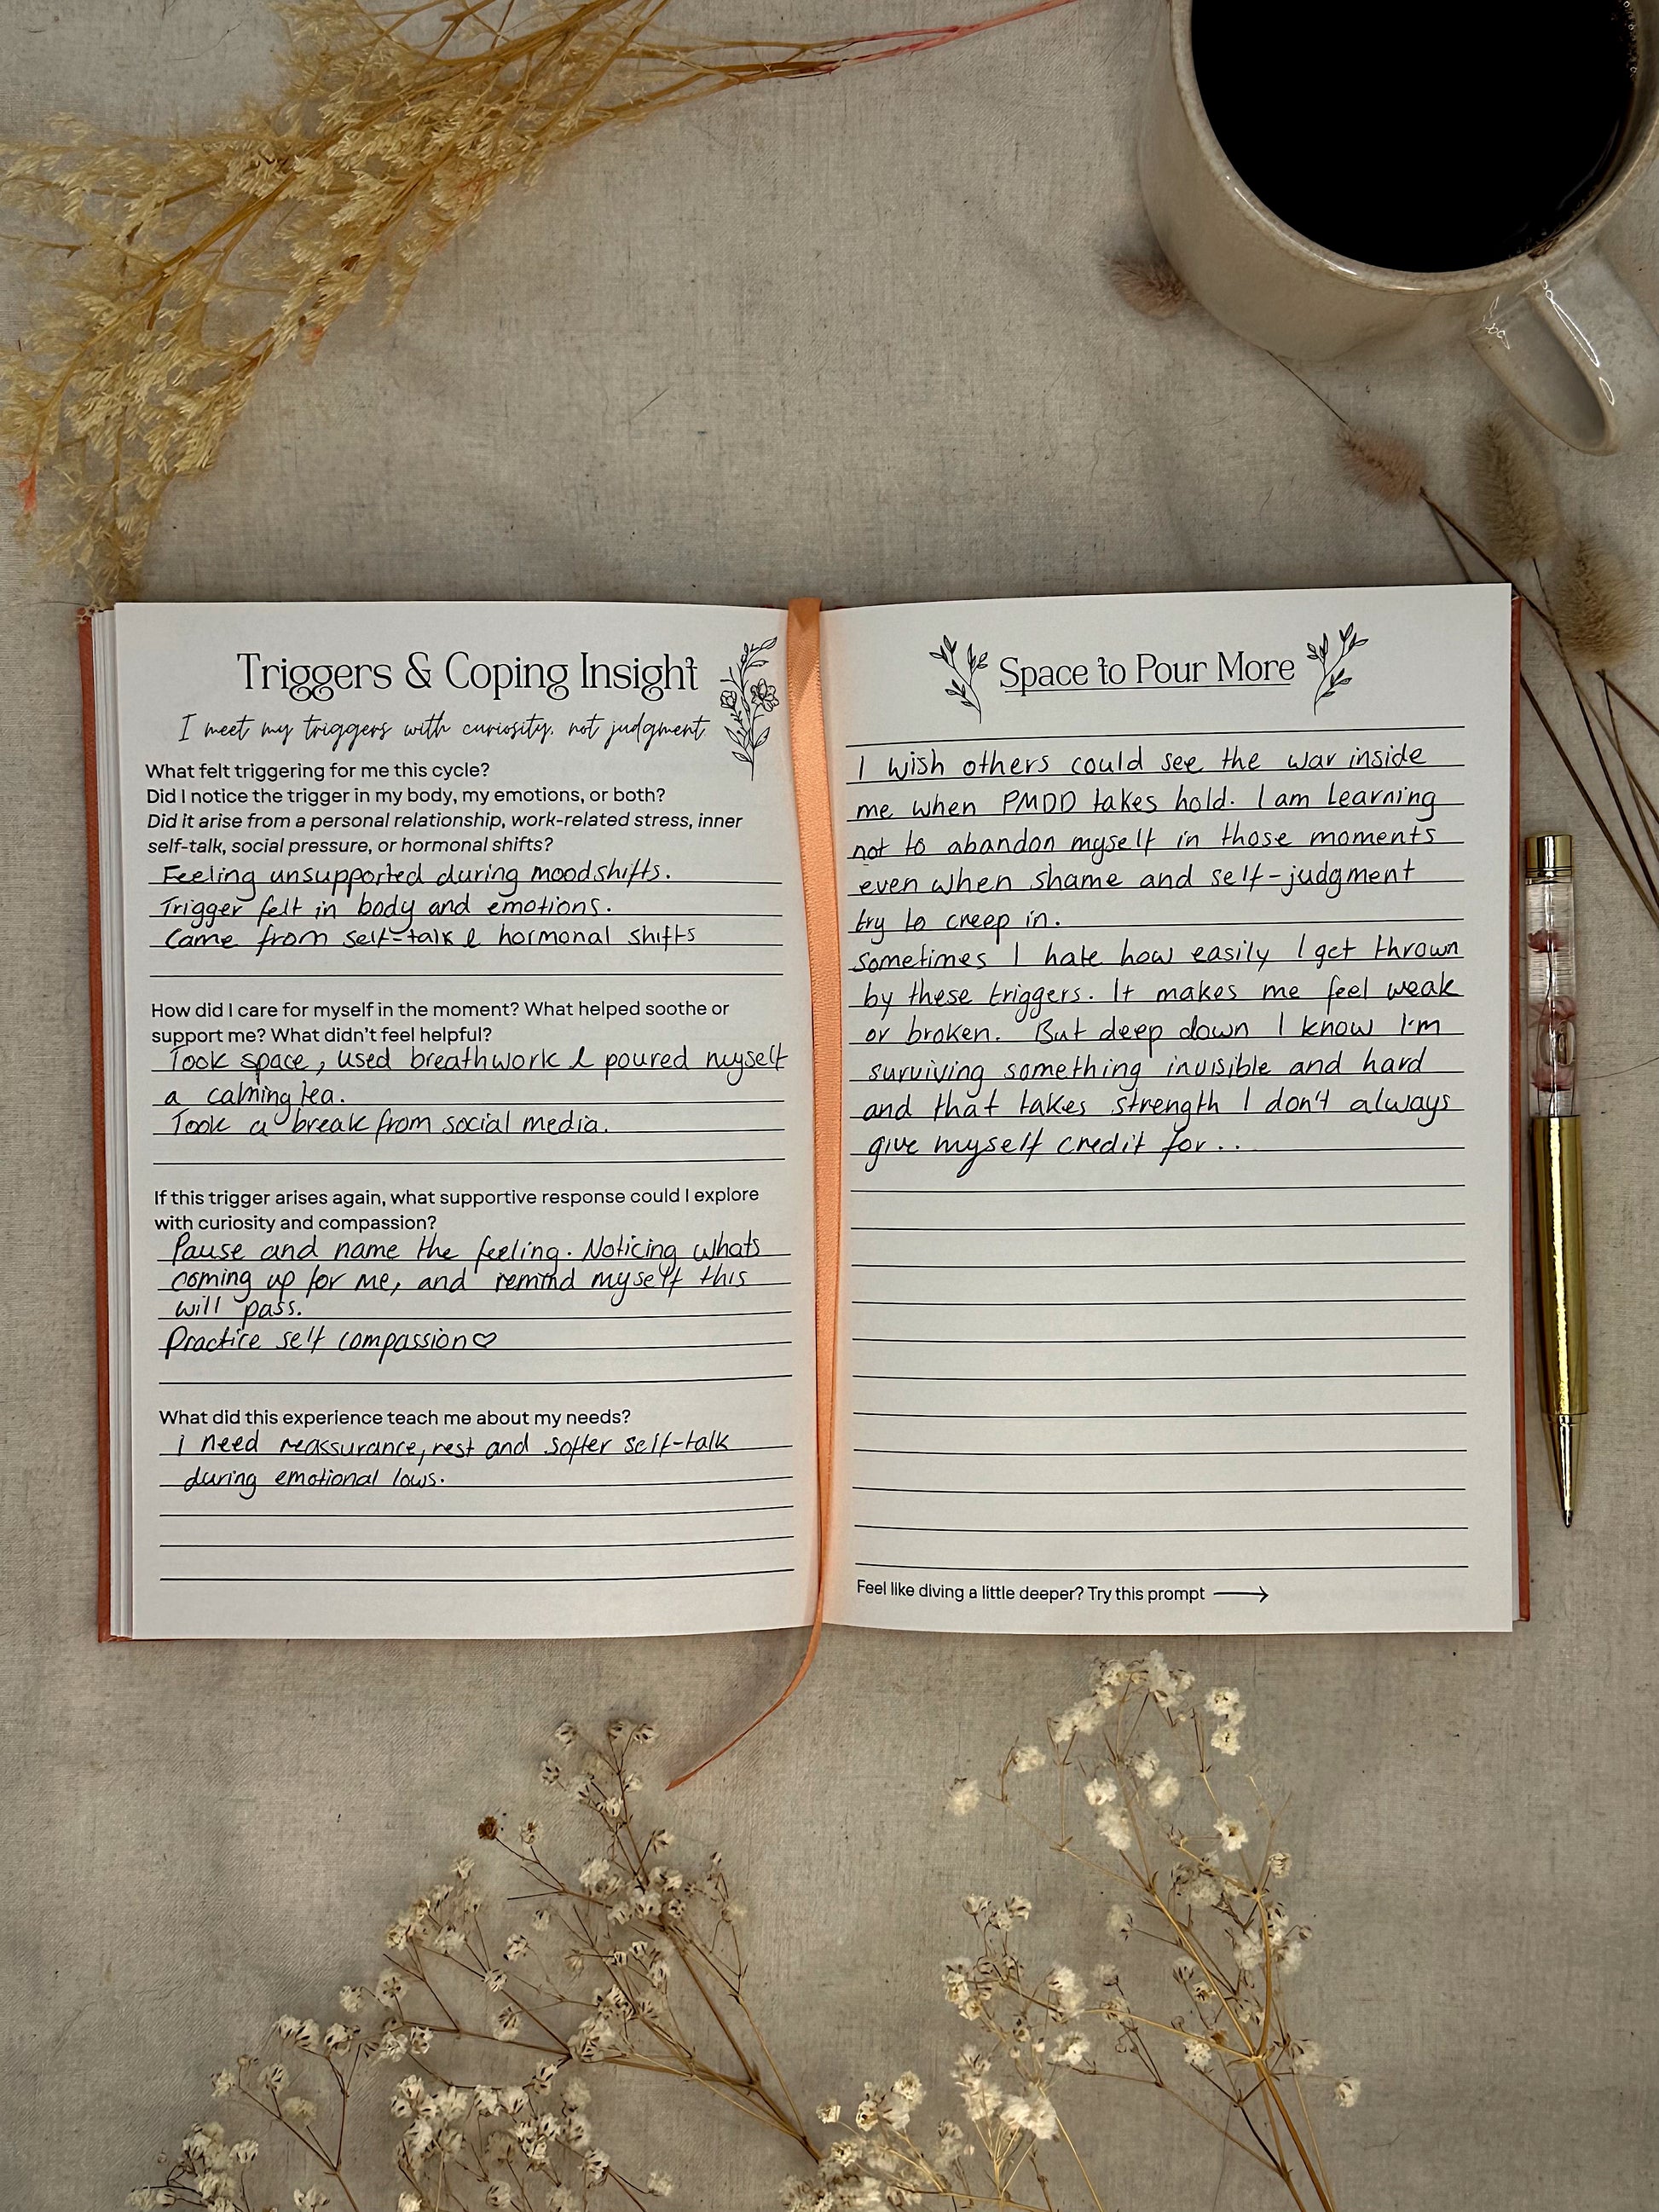 Triggers & Coping Insight
I meet my triggers with curiosity, not judgment
What felt triggering for me this cycle?
Did I notice the trigger in my body, my emotions, or both?
Did it arise from a personal relationship, work-related stress, inner
self-talk, social pressure, or hormonal shifts?
Feeling unsupported during moodshifts.
Trigger felt in body and emotions.
Came from self-talk & hormonal shifts
How did I care for myself in the moment? What helped soothe or
support me? What didn't feel helpful?
Took space, used breathwork & poured myself
a calming tea.
Took a break from social media.
If this trigger arises again, what supportive response could I explore
with curiosity and compassion?
Pause and name the feeling. Noticing whats
coming up for me, and remind myself this
will pass.
Practice self compassion♡
What did this experience teach me about my needs?
I need reassurance, rest and softer self-talk
during emotional lows.
Space to Pour More
I wish others could see the war inside
me when PMDD takes hold. I am learning
not to abandon myself in those moments
even when shame and self-judgment
try to creep in.
Sometimes I hate how easily I get thrown
by these triggers. It makes me feel weak
or broken. But deep down I know I'm
surviving something invisible and hard
and that takes strength I don't always
give myself credit for...
Feel like diving a little deeper? Try this prompt →